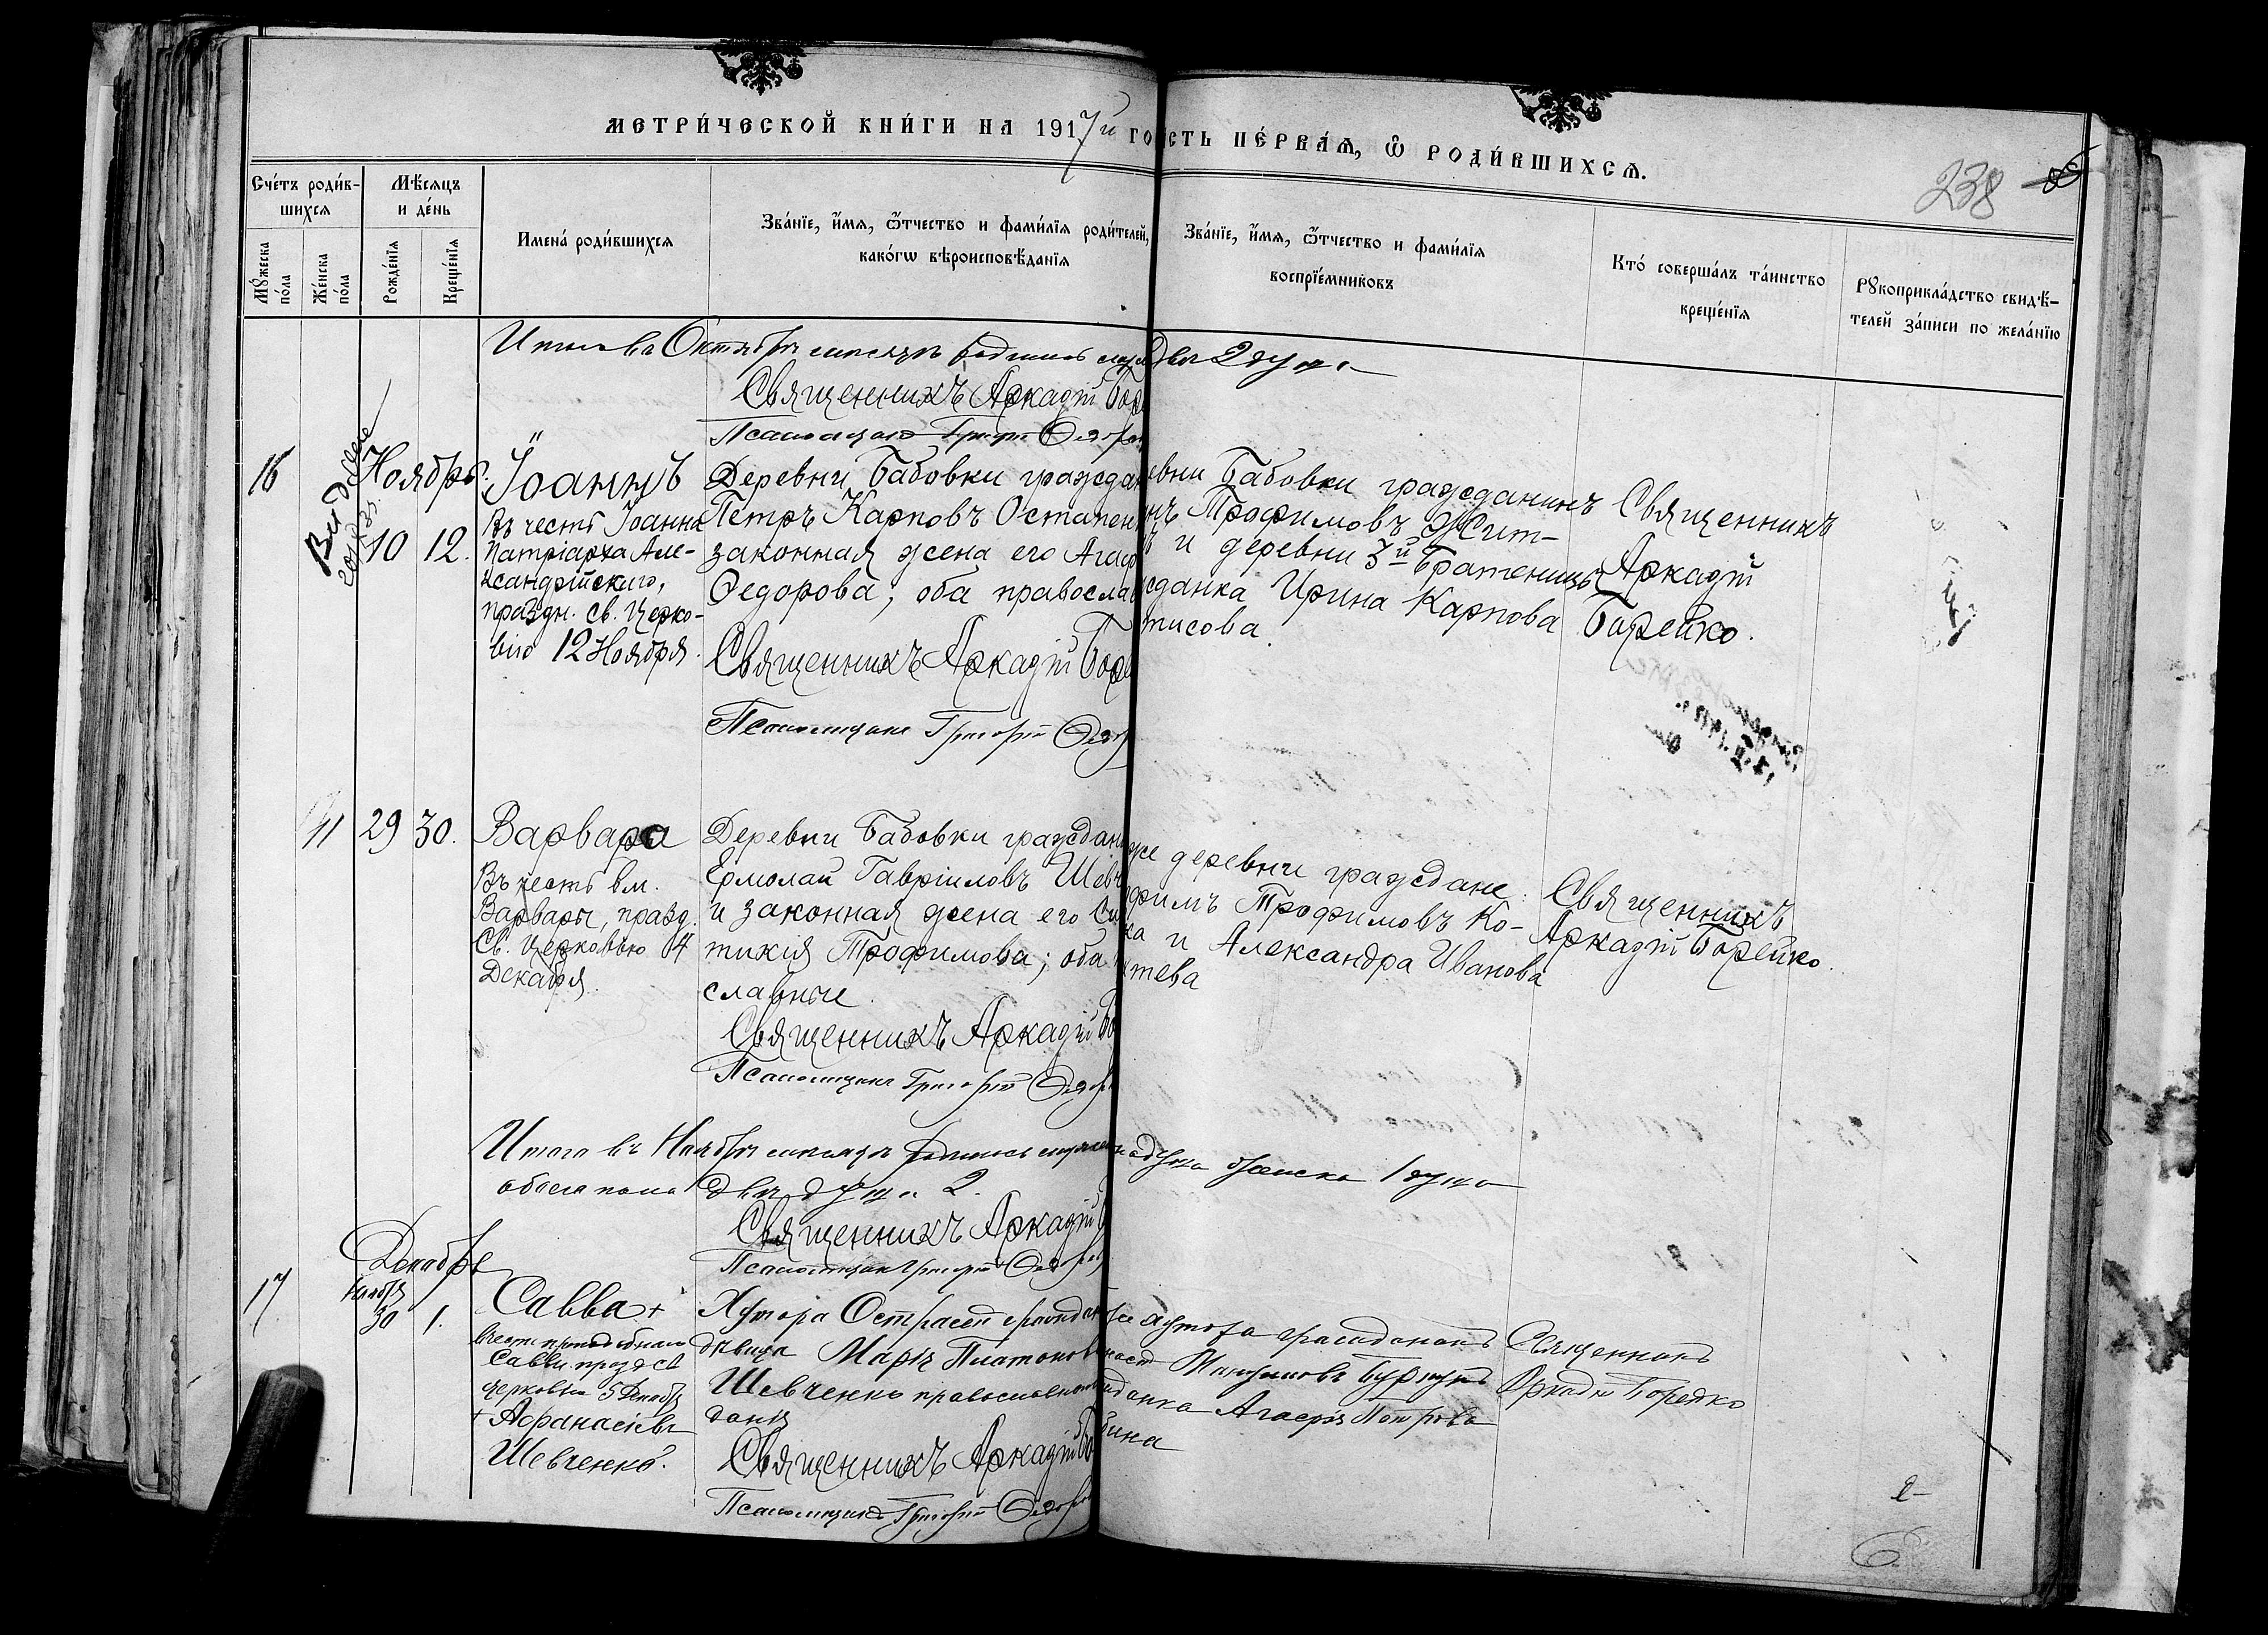 МЕТРИ́ЧЕСКОЙ КНИ́ГИ НА 1917 й ГО
СТЬ ПЕ́РВАѦ, Ѡ РОДИ́ВШИХСѦ.
238
Сче́тъ роди́в-
шихсѧ
Мѣ́сѧцъ
и де́нь
Мꙋ́жеска по́ла
Же́нска по́ла
Рожде́нїѧ
Креще́нїѧ
Имена́ роди́вшихсѧ
Зва́нїе, и́мѧ, ѻ́тчество и фами́лїѧ роди́телей,
како́гѡ вѣроисповѣ́данїѧ
Зва́нїе, и́мѧ, ѻ́тчество и фами́лїѧ
воспрїе́мниковъ
Кто́ соверша́лъ та́инство
креще́нїѧ
Рꙋкоприкла́дство свидѣ́-
телей за́писи по жела́нїю
Итого въ Октябрѣ мѣсяцѣ 2 душ
Священникъ Аркадій Бор
Псаломщикъ Григорій Ѳедор
16
Ноябрь.
10 12.
Іоаннъ
Въ честь Іоанна
Патріарха Але-
ксандрійскаго,
праздн. св. Церко-
вію 12 Ноября.
Деревни Бабовки граждан
Петръ Карповъ Остапен
законная жена его Агаф
Ѳедорова; оба правосла
Священникъ Аркадій Бор
Псаломщикъ Григорій Ѳедор
евни Бабовки гражданинъ
нъ Трофимовъ Жит-
ъ и деревни 3й Братеницы
жданка Ирина Карпова
тисова.
Священникъ
Аркадій
Борейко.
11 29 30.
Варвара
Въ честь вм.
Варвары, празд.
Св. Церковью 4
Декабря.
Деревни Бабовки граждан
Ермолай Гавріиловъ Шев
и законная жена его Си
тикія Трофимова; оба
славные.
Священникъ Аркадій Бо
Псаломщикъ Григорій Ѳедор
же деревни граждане:
фимъ Трофимовъ Ко-
ка и Александра Иванова
тева
Священникъ
Аркадій Борейко.
Итого въ Ноябрѣ мѣсяцѣ родилось
душа женска 1 душа
обоего пола двѣ души 2.
Священникъ Аркадій
Псаломщикъ Григорій Ѳедоров
Декабрь
17
Ноября
30 1.
Савва +
въ честь преподобнаго
Саввы празд св
церковью 5 Декабр
+ Афанасіевъ
Шевченко.
Хутора граждан
дѣвица Марія Платонов
Шевченко православнаго
данія
Священникъ Аркадій Бо
Псаломщикъ Григорій Ѳедоров
же хутора гражданинъ
жданка Агафія Петрова
бина
Священникъ
Аркадій Борейко